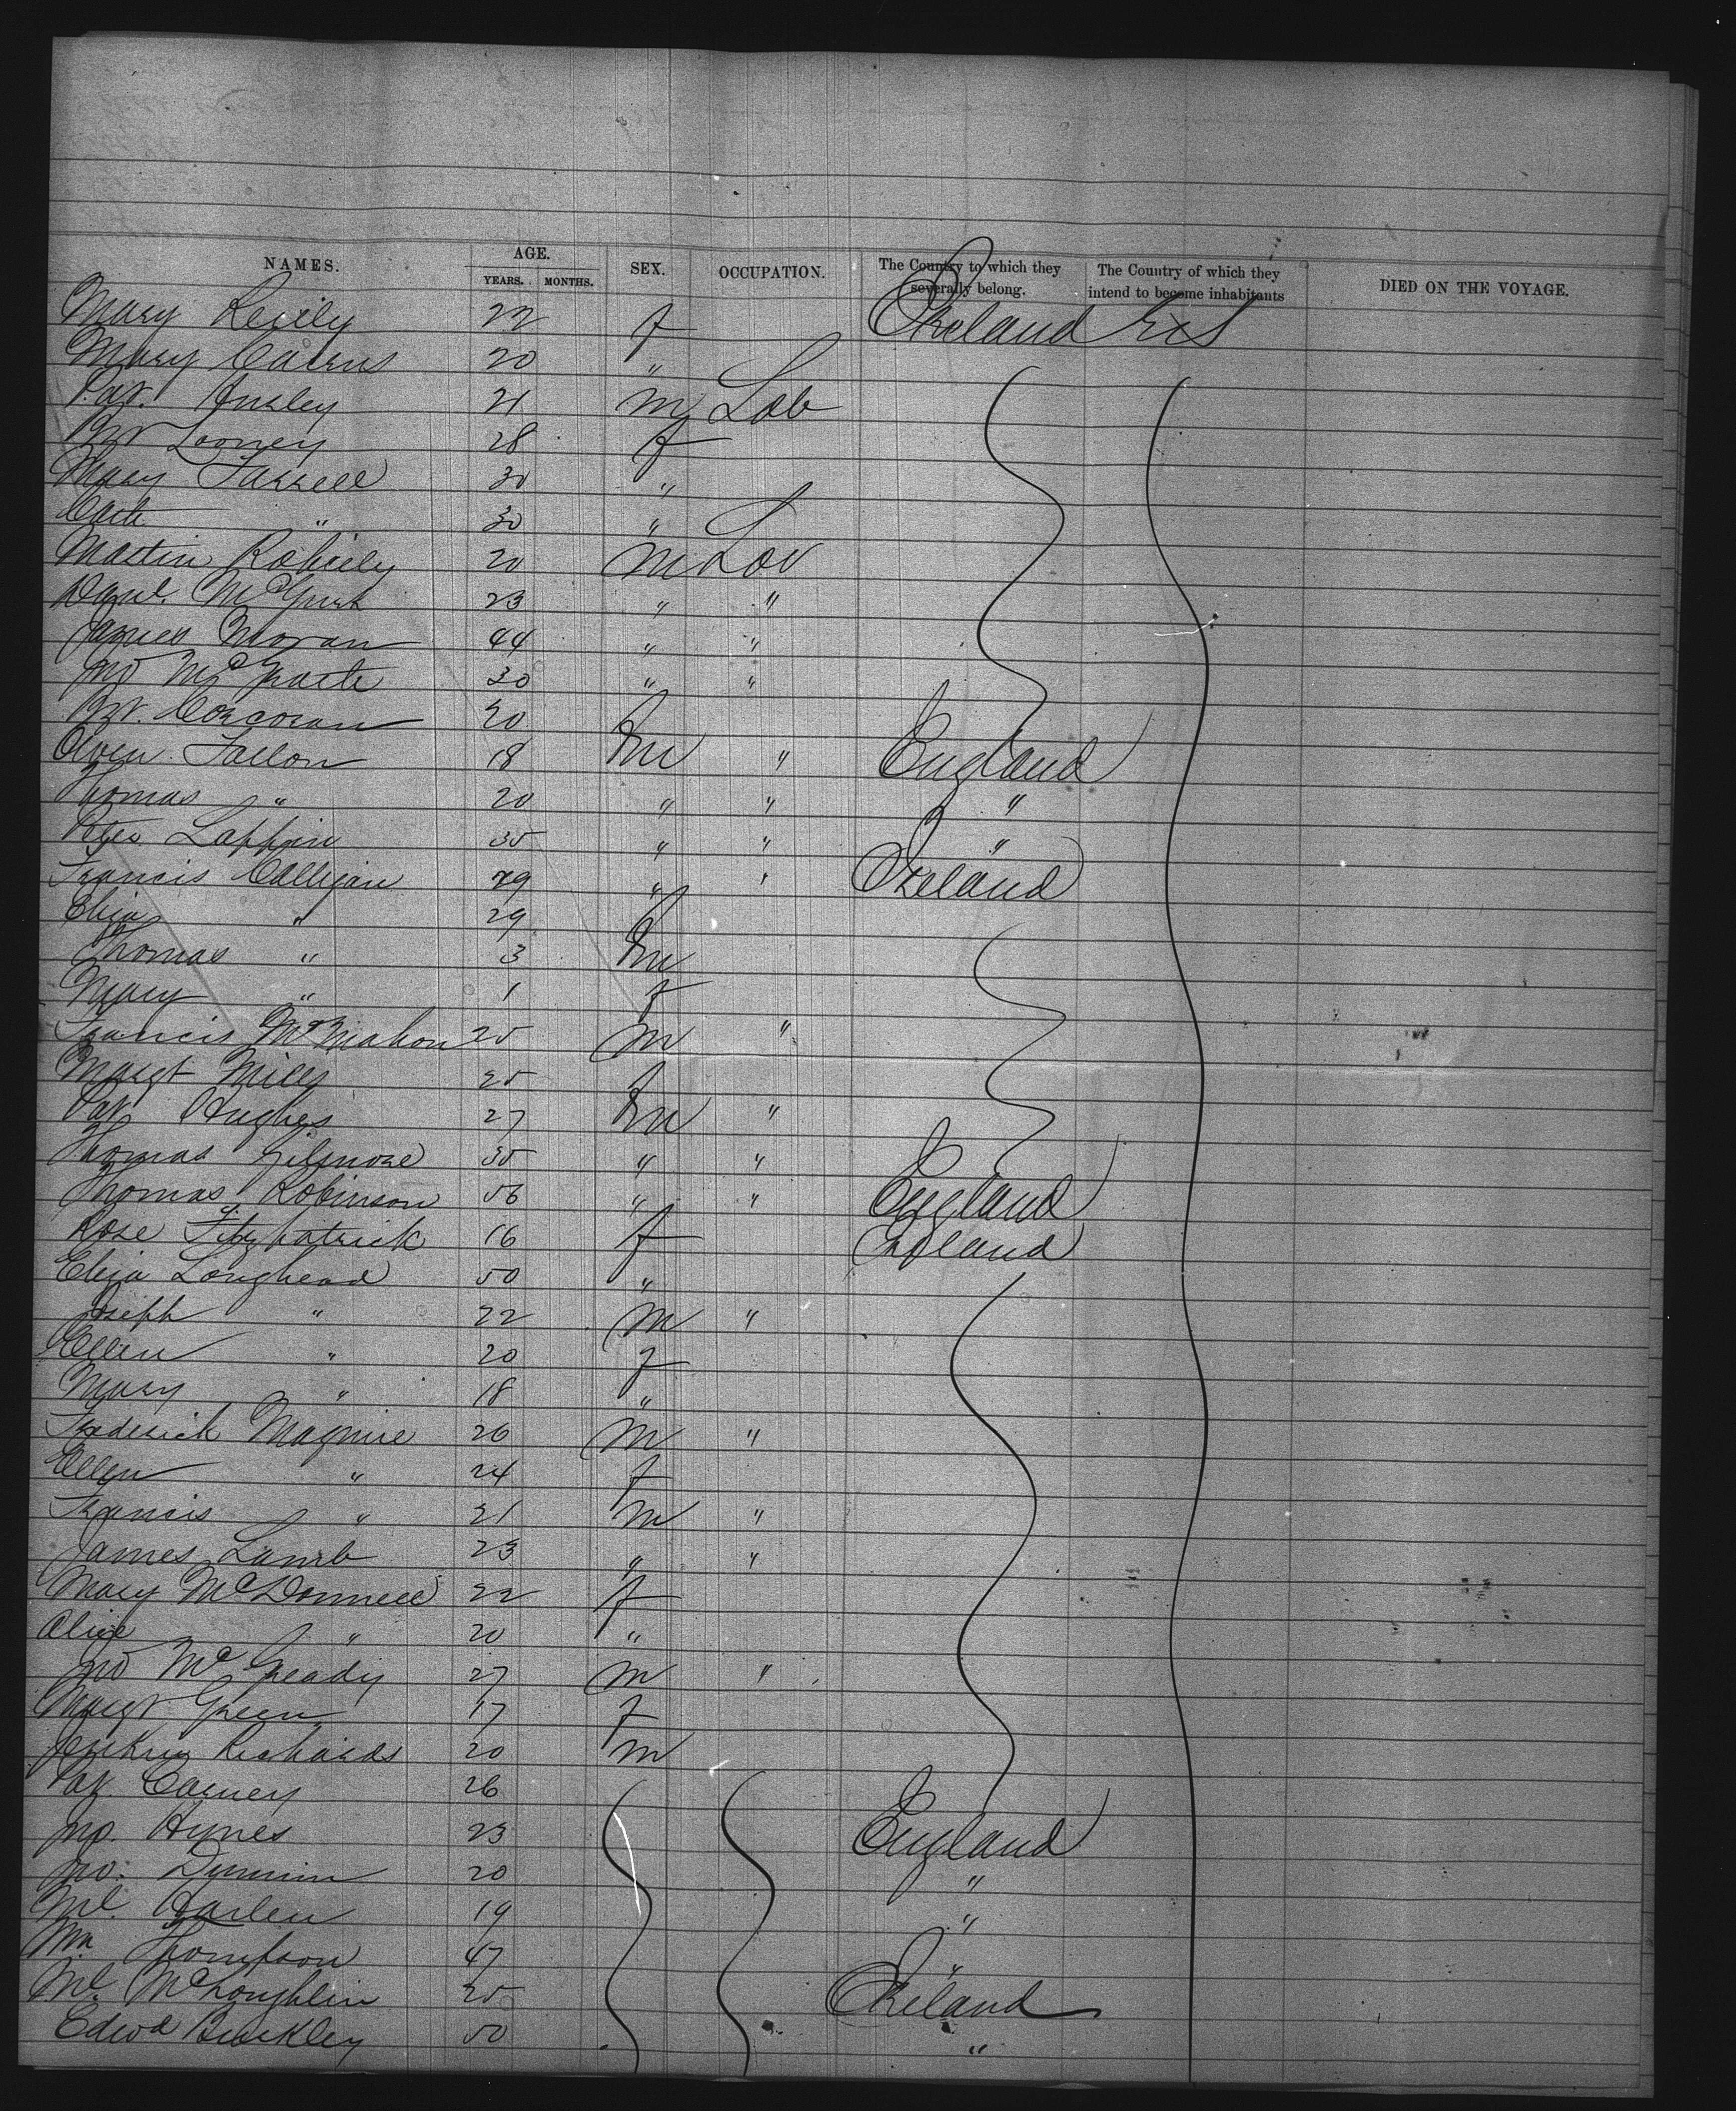 NAMES. AGE. YEARS. MONTHS. SEX. OCCUPATION. The Country to which they severally belong. The Country of which they intend to become inhabitants DIED ON THE VOYAGE.
Mary Reily 22 f Ireland U S
Mary Cairns 20 "
Pat. 21 m Lab
Looney 28 f
Mary Farrell 30 "
Cath " 30 "
Martin 20 m Lab
Danl. 23 " "
James Moran 44 " "
Jno McGrath 30 " "
Corcoran 20
Owen Fallon 18 m " England
Thomas " 20 " " "
Peter Lappin 35 " " "
Francis Calligan 29 " " Ireland
Eliza " 29 f
Thomas " 3 m
Mary " 1 f
Francis McMahon 25 m "
Margt Mills 25 f
Pat Hughes 27 m "
Thomas Gilmore 35 " "
Thomas Robinson 56 " " England
Rose Fitzpatrick 16 f Ireland
Eliza Longhead 50 "
Joseph " 22 m "
Ellen " 20 f
Mary " 18 "
Frederick Maguire 26 m "
Ellen " 24 f
Francis " 21 m "
James Lamb 23 " "
Mary McDonnell 22 f
Alice " 20 "
Jno McGready 27 m "
Margt Green 17 f
Richards 20 m
Pat. Carney 26
Jno. Hynes 23 England
Jno. 20 "
Ml. Harlen 19 "
Wm Thompson 47 "
Ml. McLoughlin 25 Ireland
Edwd Buckley 50 "